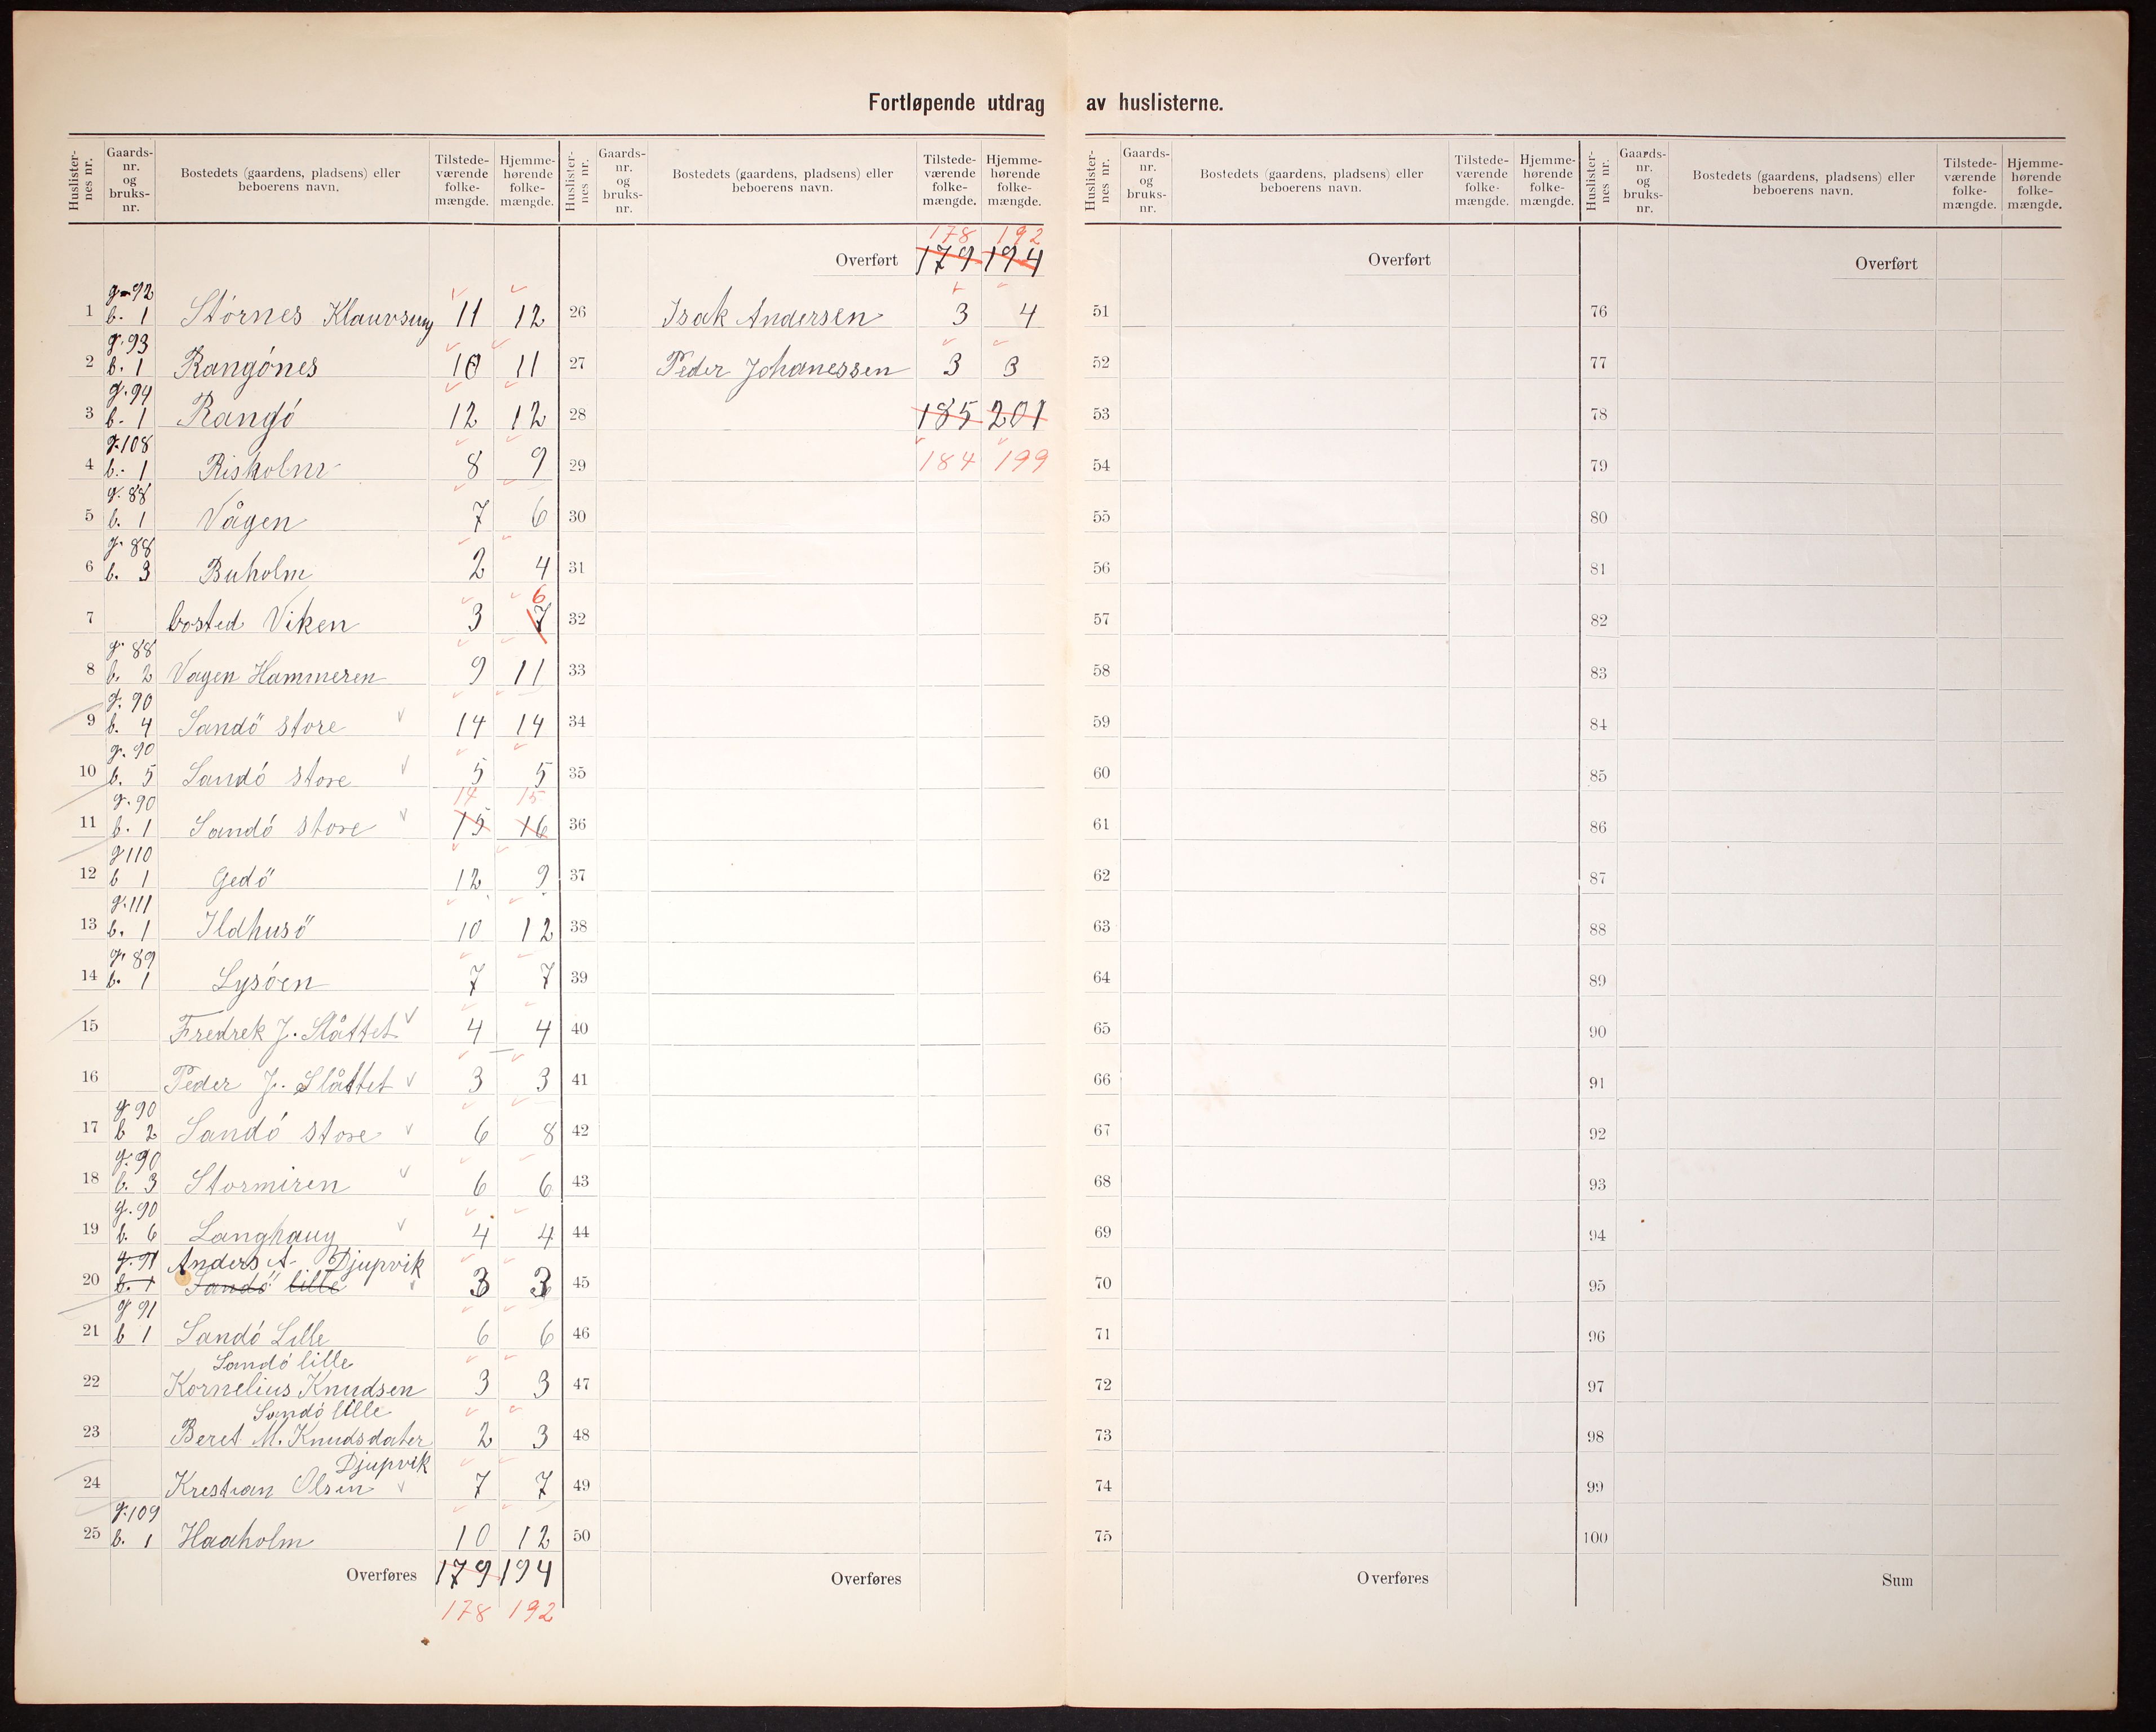 Fortløpende utdrag av huslisterne.
Huslisternes nr. Gaards-nr. og bruks-nr. Bostedets (gaardens, pladsens) eller beboerens navn. Tilstede-værende folke-mængde. Hjemme-hørende folke-mængde.
Huslisternes nr. Gaards-nr. og bruks-nr. Bostedets (gaardens, pladsens) eller beboerens navn. Tilstede-værende folke-mængde. Hjemme-hørende folke-mængde.
Huslisternes nr. Gaards-nr. og bruks-nr. Bostedets (gaardens, pladsens) eller beboerens navn. Tilstede-værende folke-mængde. Hjemme-hørende folke-mængde.
Huslisternes nr. Gaards-nr. og bruks-nr. Bostedets (gaardens, pladsens) eller beboerens navn. Tilstede-værende folke-mængde. Hjemme-hørende folke-mængde.
g. 92
1 b. 1 Störnes 11 12
g. 93
2 b. 1 Rangönes 10 11
g. 94
3 b. 1 Rangö 12 12
g. 108
4 b. 1 Risholm 8 9
g. 88
5 b. 1 Vågen 7 6
g. 88
6 b. 3 Buholm 2 4
6
7 bosted Viken 3 7
g. 88
8 b. 2 Vagen Hammeren 9 11
g. 90
9 b. 4 Sandö store 14 14
g. 90
10 b. 5 Sandö store 5 5
g. 90 14 15
11 b. 1 Sandö store 15 16
g 110
12 b 1 Gedö 12 9
g. 111
13 b. 1 Ildhusö 10 12
g. 89
14 b. 1 Lysöen 7 7
15 Fredrek J. Slåttet 4 4
16 Peder J. Slåttet 3 3
g 90
17 b 2 Sandö store 6 8
g. 90
18 b. 3 Stormiren 6 6
g. 90
19 b. 6 Langhaug 4 4
g. 91 Anders A. Djupvik
20 b. 1 Sandö lille 3 3
g 91
21 b 1 Sandö Lille 6 6
Sandö lille
22 Kornelius Knudsen 3 3
Sandö lille
23 Beret M. Knudsdater 2 3
Djupvik
24 Krestian Olsen 7 7
g. 109
25 b. 1 Haaholm 10 12
Overføres 179 194
178 192
178 192
Overført 179 194
26 Isak Andersen 3 4
27 Peder Johanessen 3 3
28 185 201
29 184 199
30
31
32
33
34
35
36
37
38
39
40
41
42
43
44
45
46
47
48
49
50
Overføres
Overført
51
52
53
54
55
56
57
58
59
60
61
62
63
64
65
66
67
68
69
70
71
72
73
74
75
Overføres
Overført
76
77
78
79
80
81
82
83
84
85
86
87
88
89
90
91
92
93
94
95
96
97
98
99
100
Sum